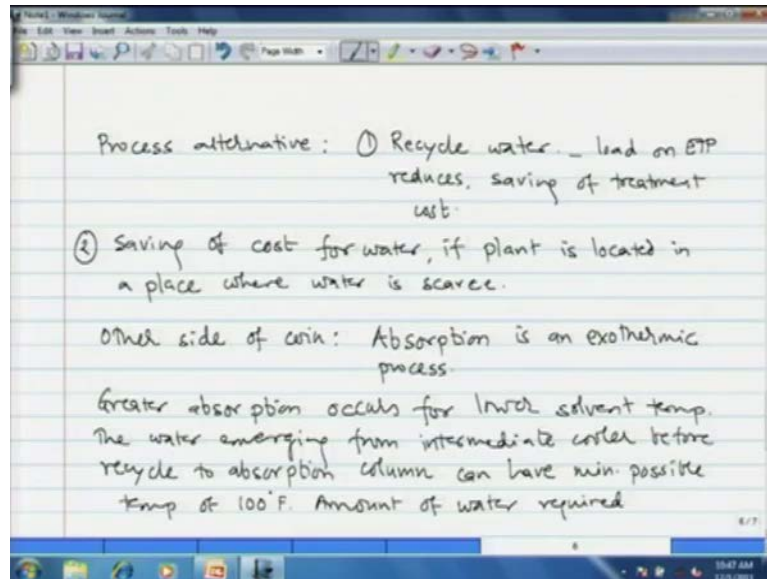 Note1 - Windows Journal
File Edit View Insert Actions Tools Help
Page Width
Process alternative : ① Recycle water. _ load on ETP
reduces, saving of treatment
cost.
② Saving of cost for water, if plant is located in
a place where water is scarce.
Other side of coin : Absorption is an exothermic
process.
Greater absorption occurs for lower solvent temp.
The water emerging from intermediate cooler before
recycle to absorption column can have min. possible
temp of 100°F. Amount of water required
6/7
6
10:47 AM